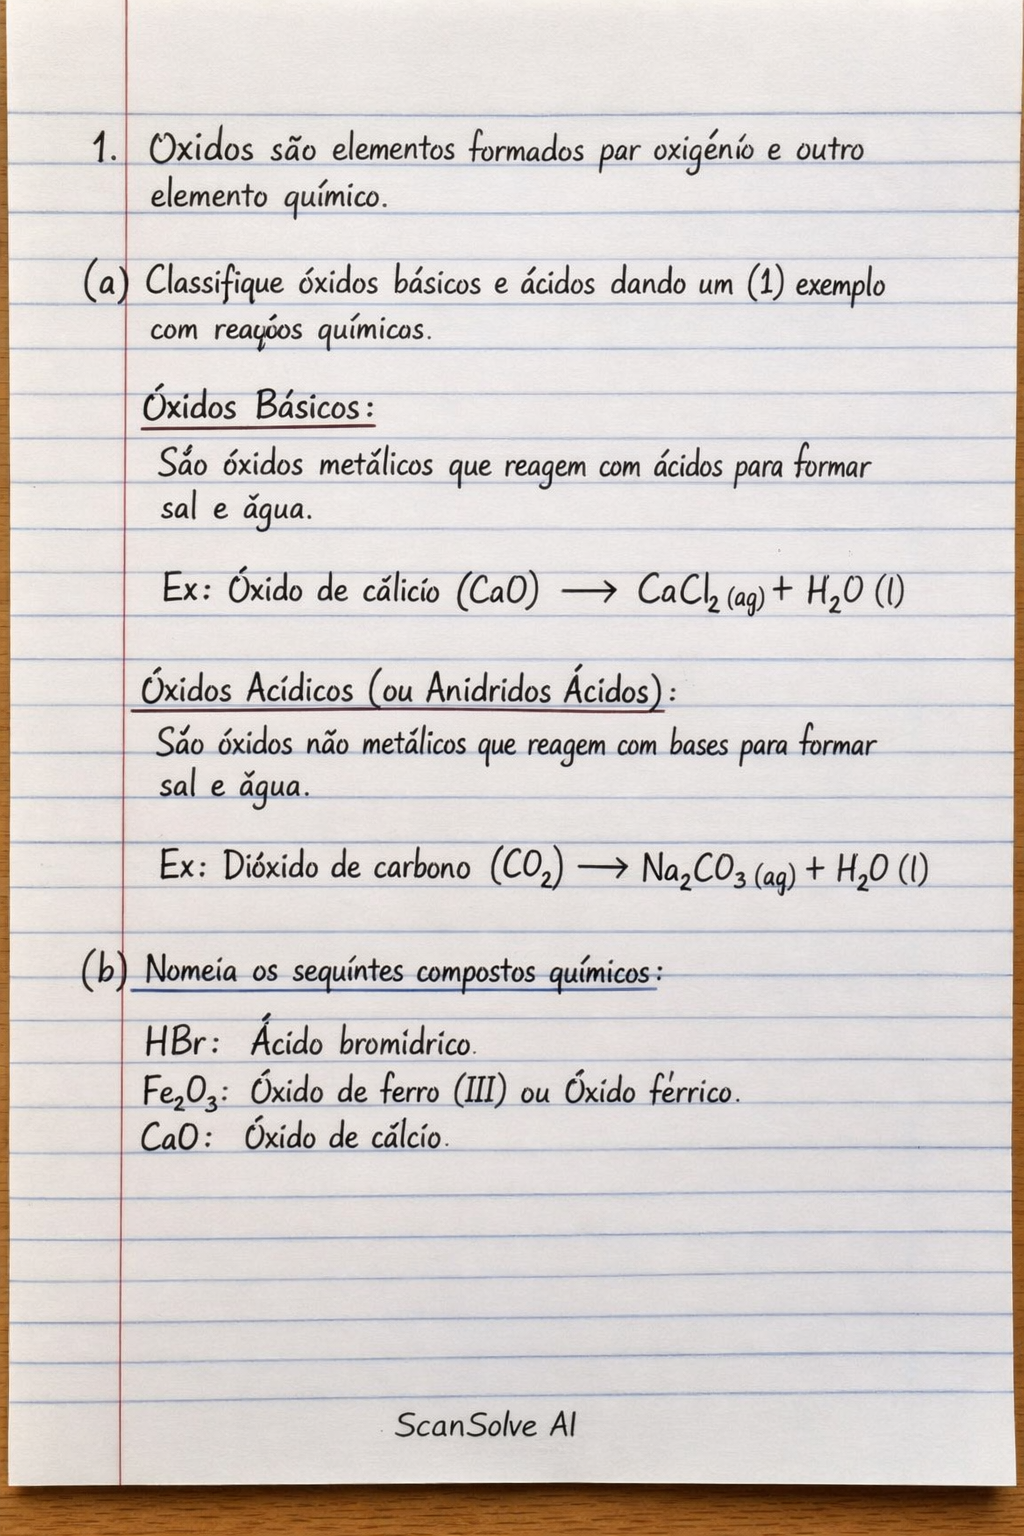 1. Oxidos são elementos formados par oxigénio e outro
elemento químico.
(a) Classifique óxidos básicos e ácidos dando um (1) exemplo
com químicas.
Óxidos Básicos:
São óxidos metálicos que reagem com ácidos para formar
sal e ǎgua.
Ex: Óxido de cálicio (CaO) ⟶ CaCl₂ (ag) + H₂O (l)
Óxidos Acídicos (ou Anidridos Ácidos):
São óxidos não metálicos que reagem com bases para formar
sal e ǎgua.
Ex: Dióxido de carbono (CO₂) ⟶ Na₂CO₃ (ag) + H₂O (l)
(b) Nomeia os sequíntes compostos químicos:
HBr: Ácido bromídrico.
Fe₂O₃: Óxido de ferro (III) ou Óxido férrico.
CaO: Óxido de cálcio.
ScanSolve AI